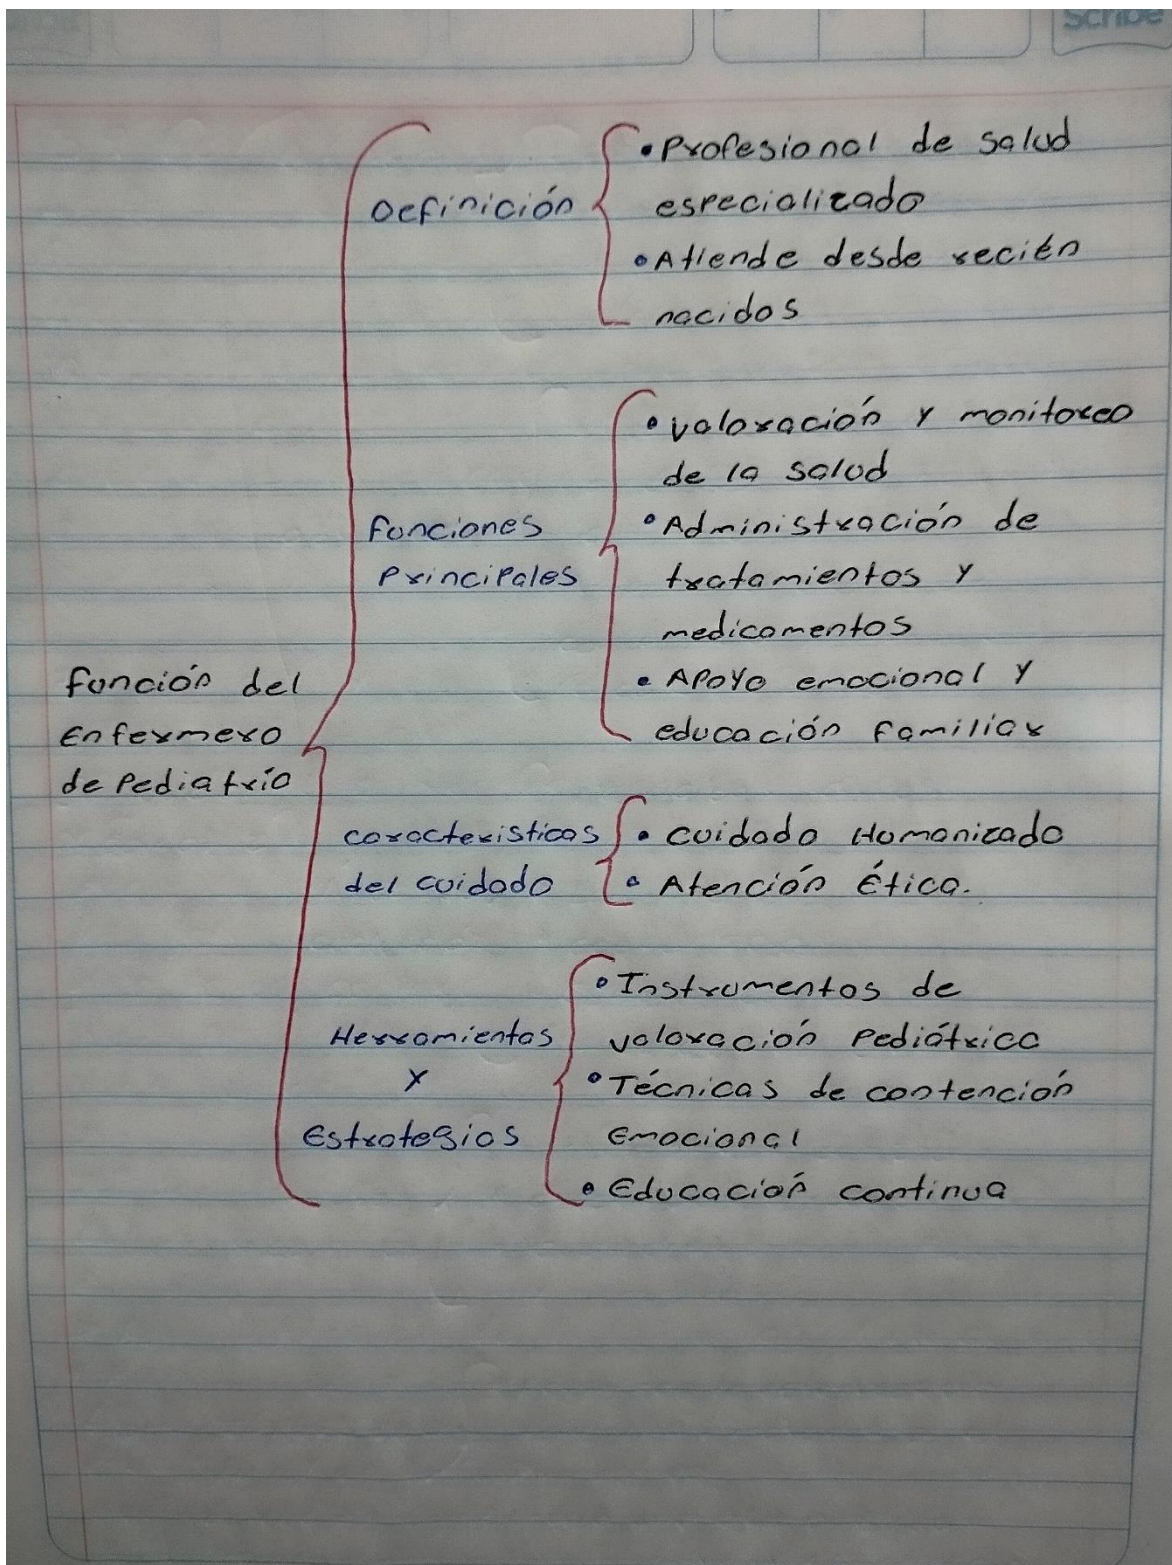 Scribe
Definición
• Profesional de salud
especializado
• Atiende desde recién
nacidos
Funciones
Principales
• Valoración y monitoreo
de la salud
• Administración de
tratamientos y
medicamentos
• Apoyo emocional y
educación familiar
Función del
Enfermero
de Pediatría
Características
del cuidado
• Cuidado Humanizado
• Atención Ética.
Herramientas
y
Estrategias
• Instrumentos de
valoración Pediátrica
• Técnicas de contención
Emocional
• Educación continua